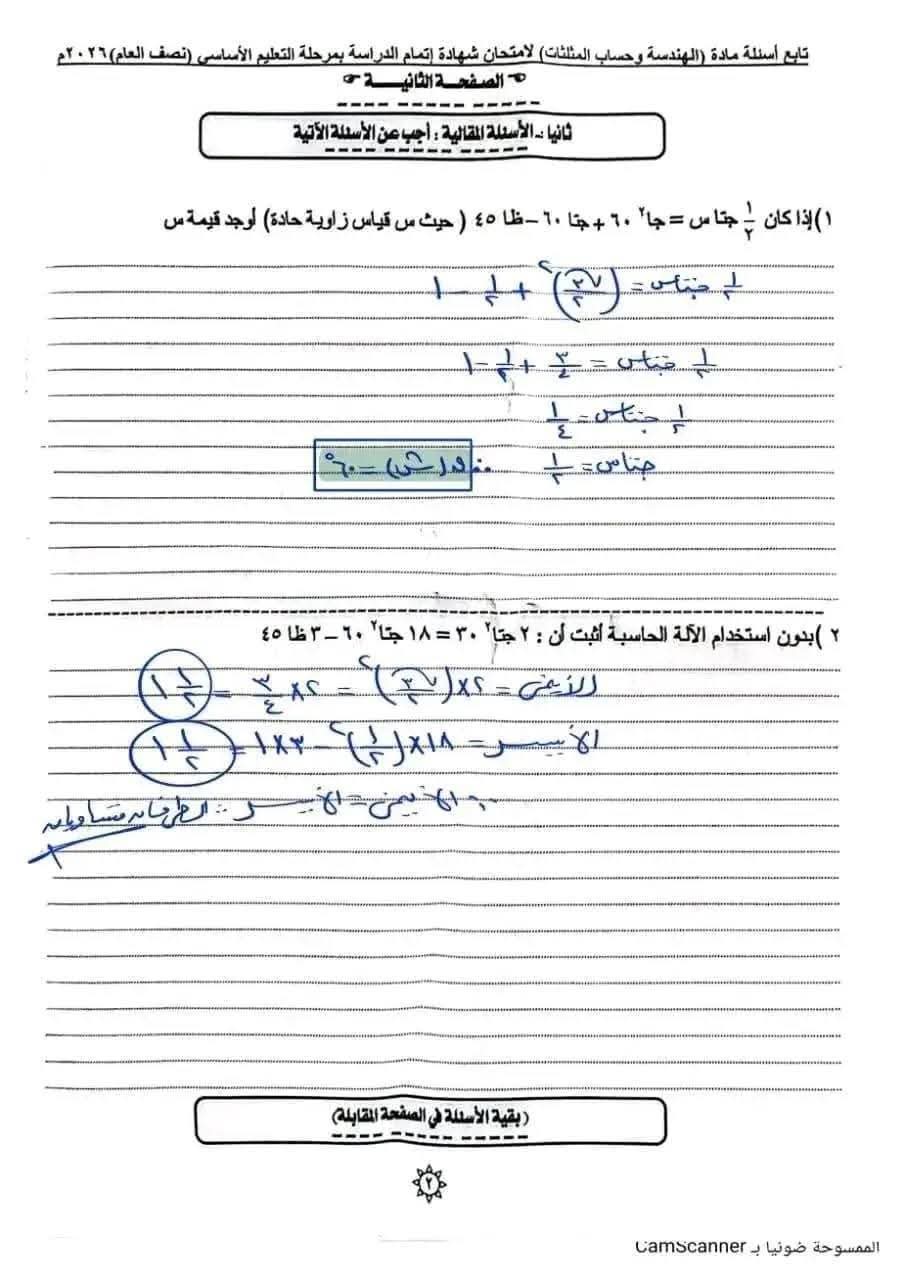 تابع أسئلة مادة (الهندسة وحساب المثلثات) لامتحان شهادة إتمام الدراسة بمرحلة التعليم الأساسى (نصف العام) ٢٠٢٦م
الصفحة الثانيـــة
ثانيا :- الأسئلة المقالية : أجب عن الأسئلة الآتية
١) إذا كان ١/٢ جتا س = جا٢ ٦٠ + جتا ٦٠ - ظا ٤٥ ( حيث س قياس زاوية حادة) أوجد قيمة س
١/٢ جتاس = (√٣/٢)٢ + ١/٢ - ١
١/٢ جتاس = ٣/٤ + ١/٢ - ١
١/٢ جتاس = ١/٤
جتاس = ١/٢ ق(س) = ٦٠°
٢) بدون استخدام الآلة الحاسبة أثبت أن : ٢ جتا٢ ٣٠ = ١٨ جتا٢ ٦٠ - ٣ ظا ٤٥
الأيمن = ٢ × (√٣/٢)٢ = ٢ × ٣/٤ = ١ ١/٢
الأيسر = ١٨ × (١/٢)٢ - ٣ × ١ = ١ ١/٢
∵ الأيمن = الأيسر ∴ الطرفان متساويان
(بقية الأسئلة فى الصفحة المقابلة)
٢
الممسوحة ضوئيا بـ CamScanner